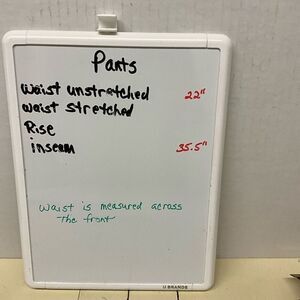 Pants
waist unstretched 22"
waist stretched
Rise
inseam 35.5"
waist is measured across
the front
U BRANDS